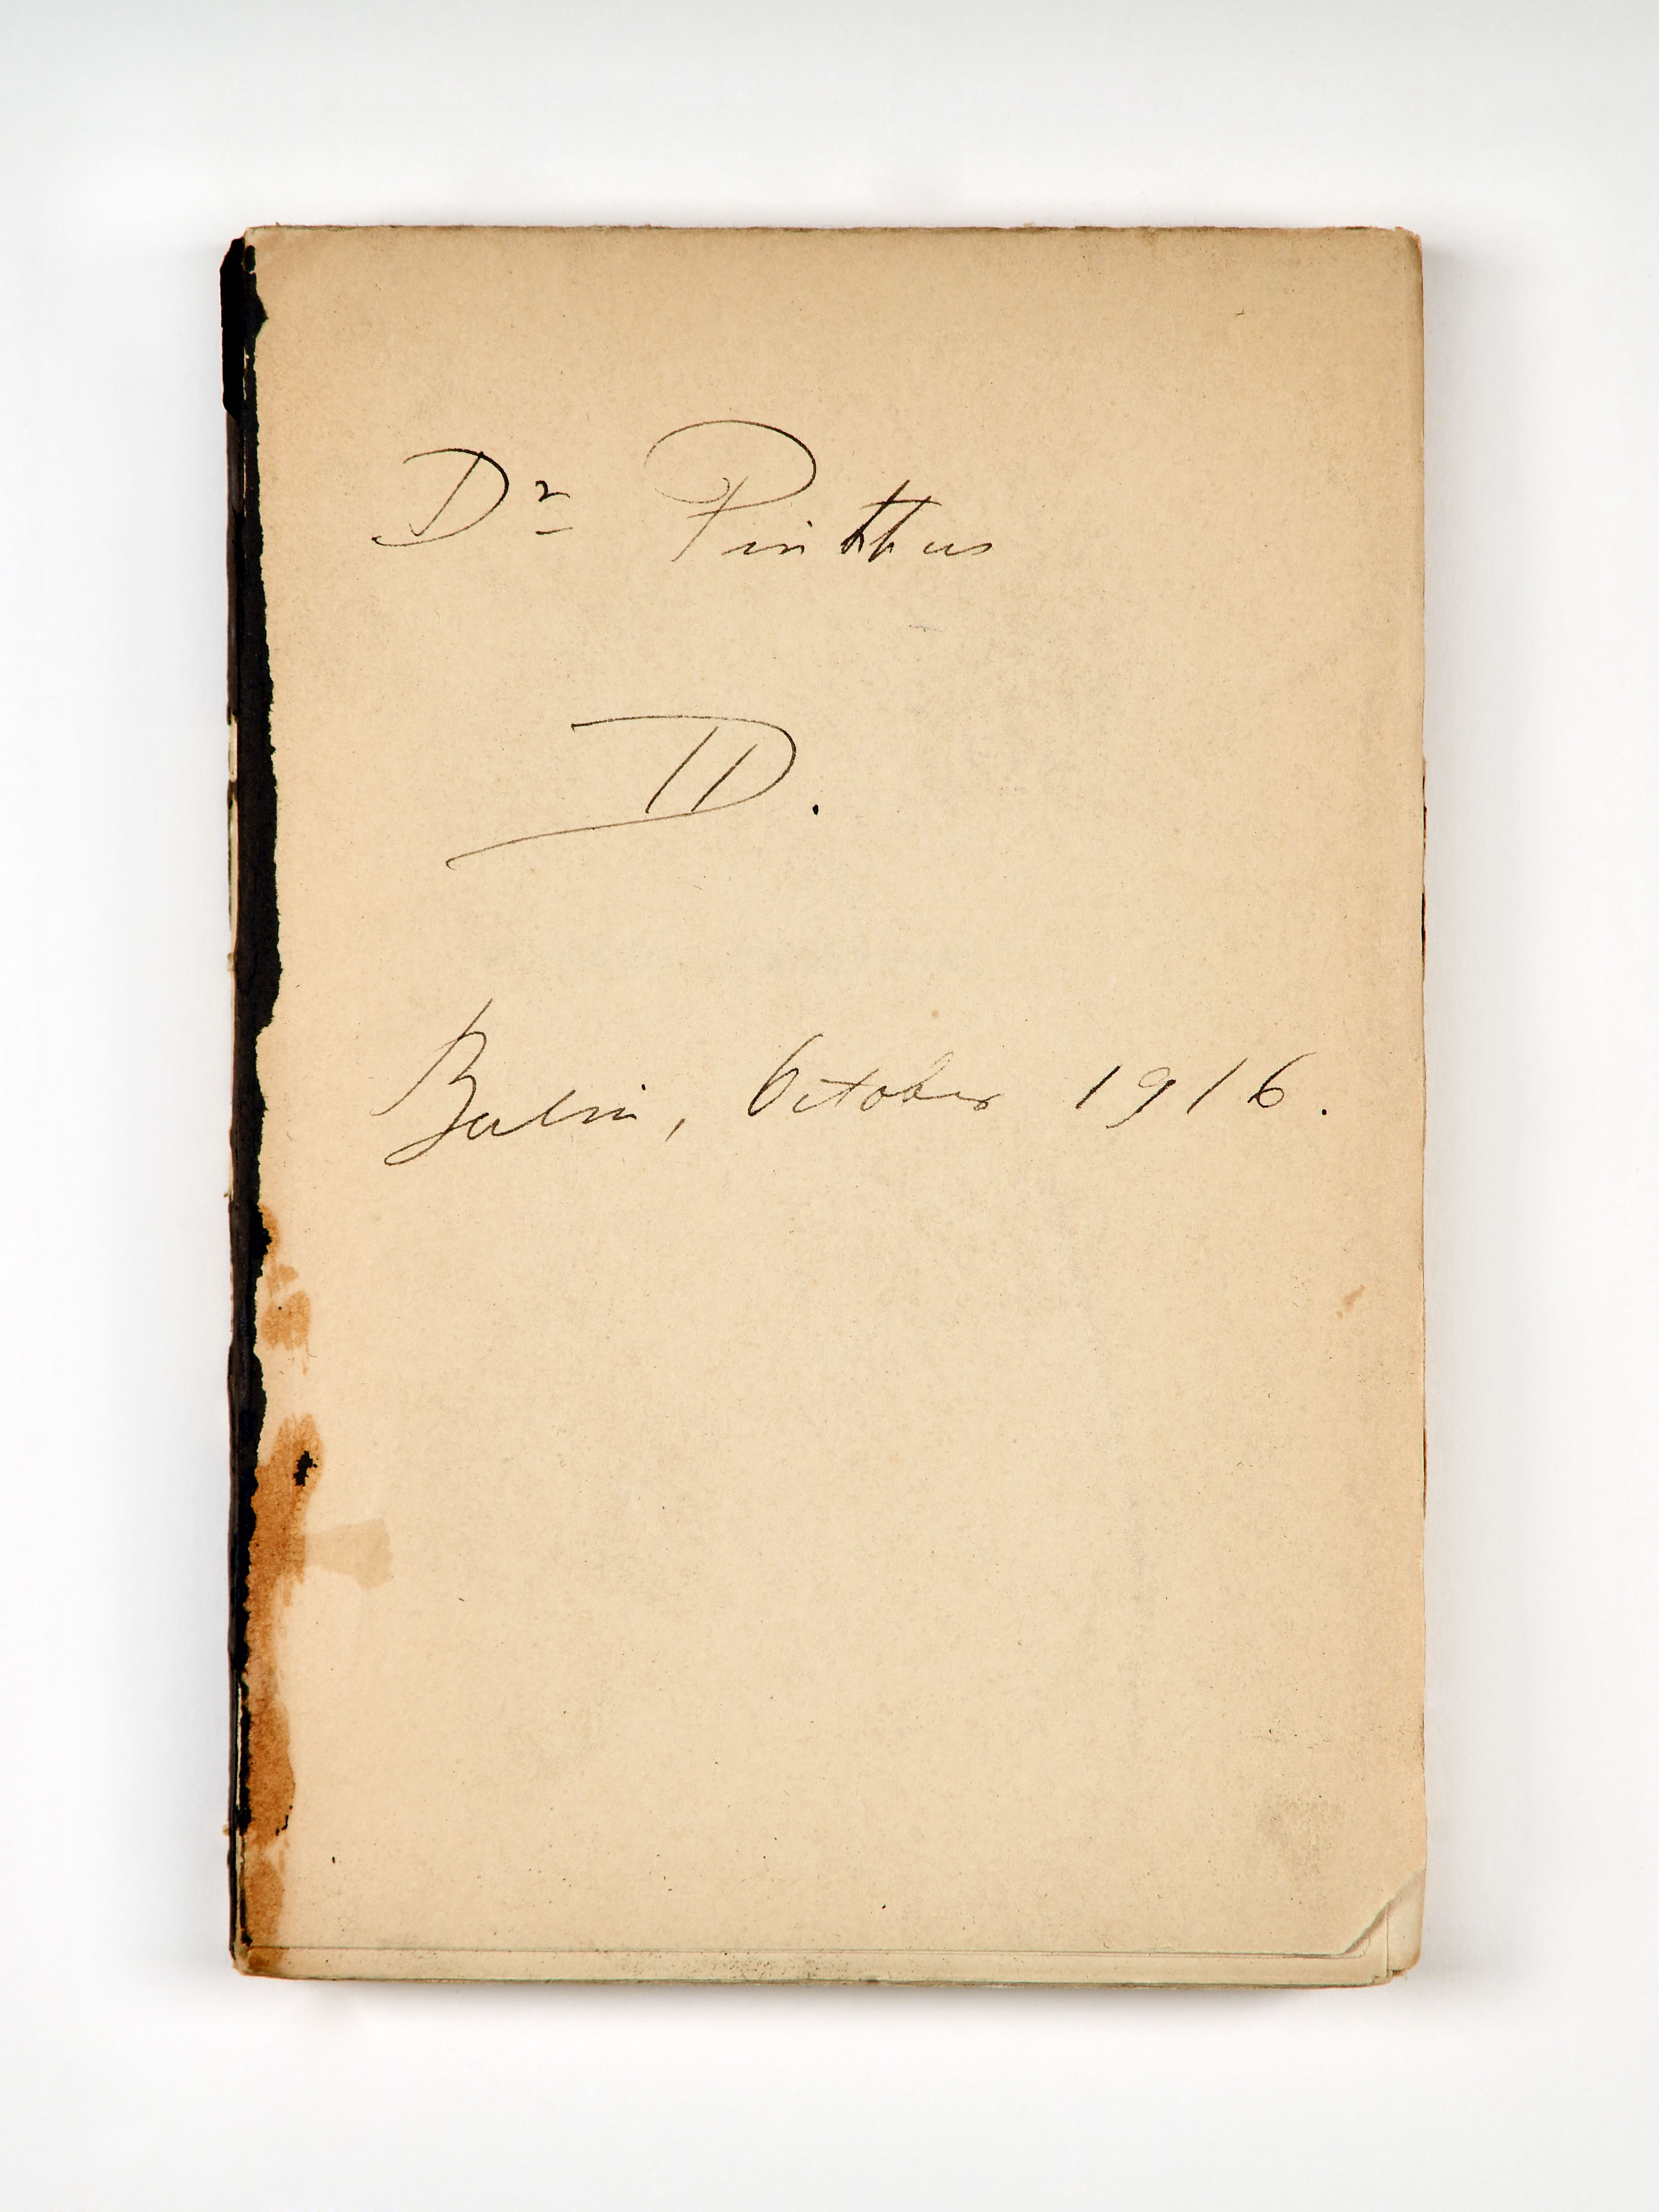 Dr Pinthus
II.
Berlin, October 1916.